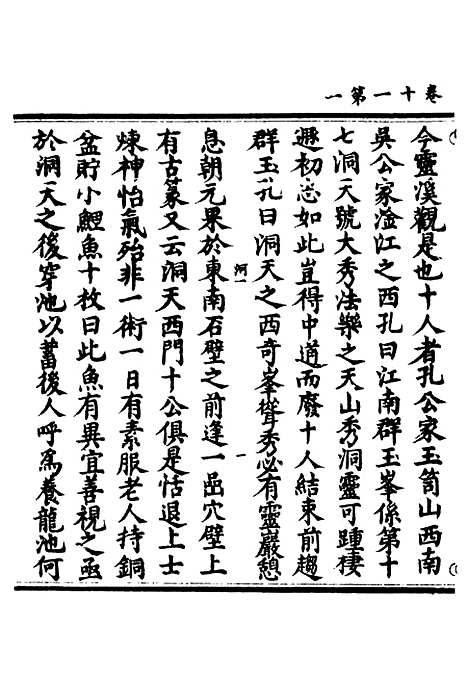 卷十一第一
今靈溪觀是也十人者孔公家玉笥山西南
吳公家淦江之西孔曰江南群玉峯係第十
七洞天號大秀法樂之天山秀洞靈可踵棲
遯初志如此豈得中道而廢十人結束前趨
群玉孔曰洞天之西奇峯聳秀必有靈巖憩
河一
一
息朝元果於東南石壁之前逢一嵒穴壁上
有古篆又云洞天西門十公俱是恬退上士
煉神怡氣殆非一術一日有素服老人持銅
盆貯小鯉魚十枚曰此魚有異宜善視之函
於洞天之後穿池以蓄後人呼爲養龍池何